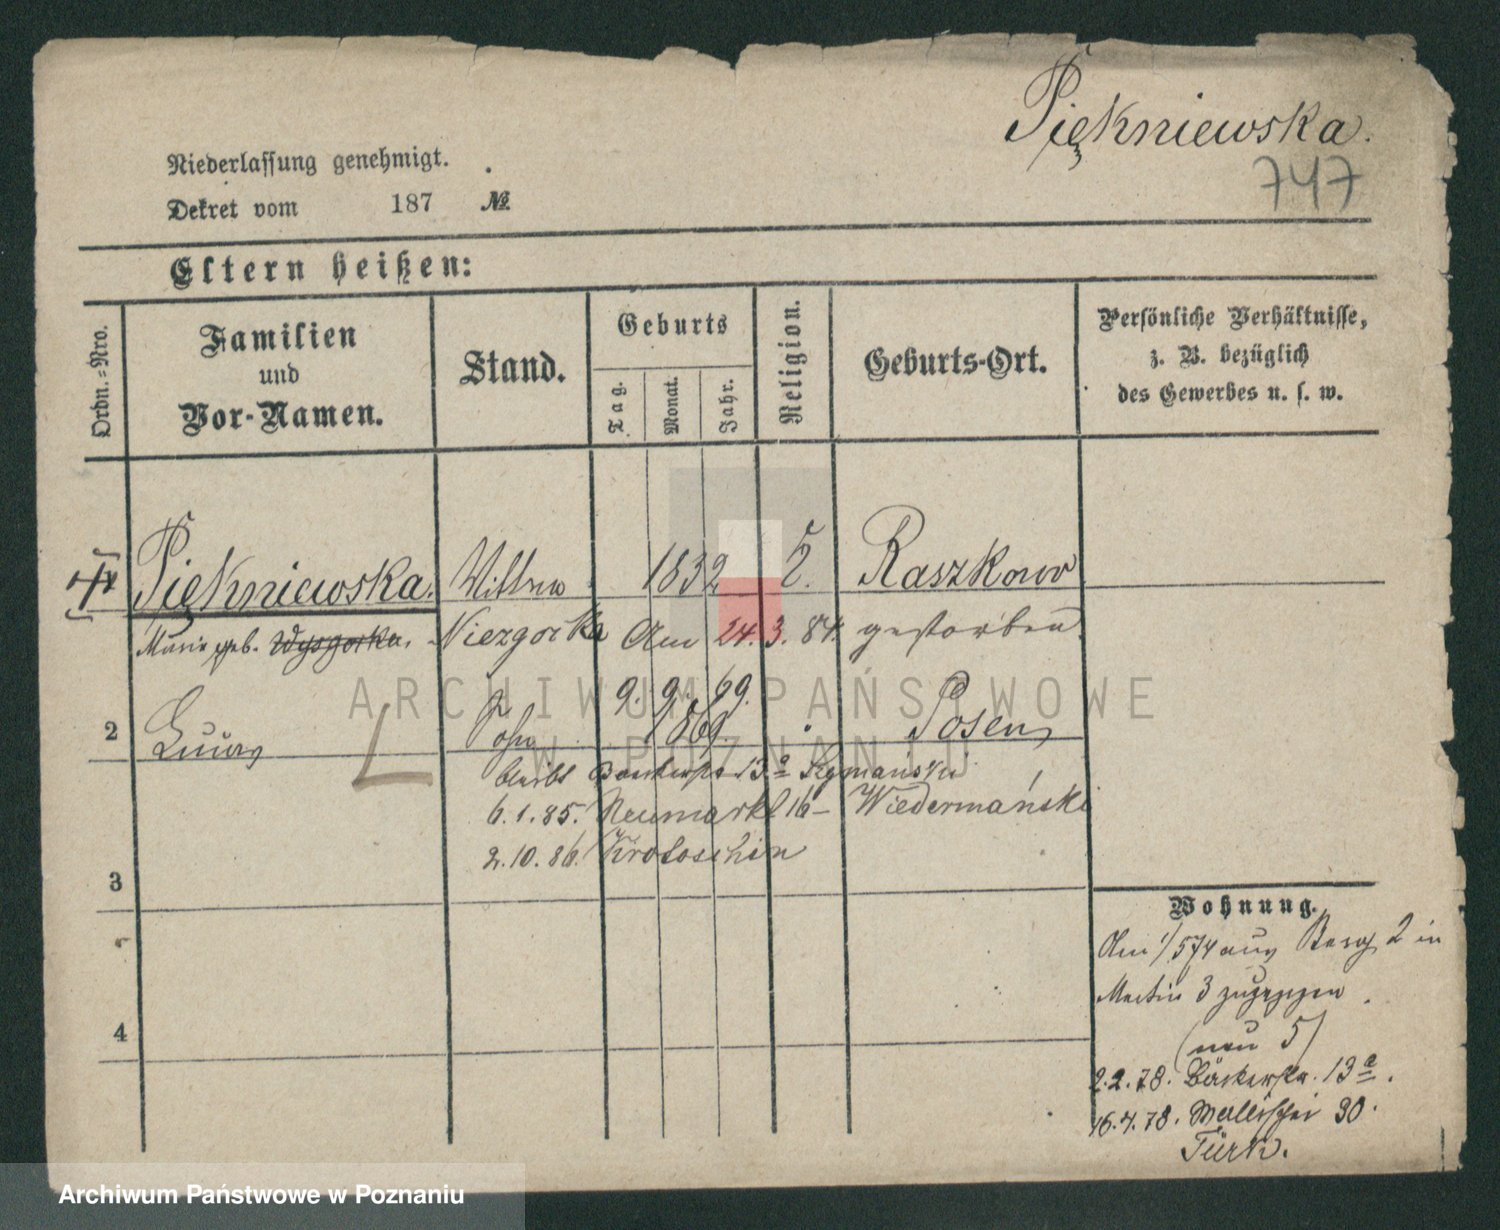 Piękniewska.
747
Niederlassung genehmigt.
Dekret vom 187 №
Eltern heißen:
Ordn.-Nro.
Familien
und
Vor-Namen.
Stand.
Geburts
Tag.
Monat.
Jahr.
Religion.
Geburts-Ort.
Persönliche Verhältnisse,
z. B. bezüglich
des Gewerbes u. s. w.
Piękniewska. Wittwe 1832 Raszkow
Marie geb. Wysgorka. Niezgorka Am 24.3.84. gestorben
9. 9. 69.
2 1869 Posen
bleibt 13a
6.1.85. Neumarkt 16 - Wiedermański
2.10.86. Krotoschin
3
Wohnung.
Am aus Berg 2 in
Martin 3 zugezogen.
(neu 5)
4
2.2.78. Bäckerstr. 13a.
16.4.78. Wallischei 30.
Türk.
ARCHIWUM PAŃSTWOWE
W POZNANIU
Archiwum Państwowe w Poznaniu